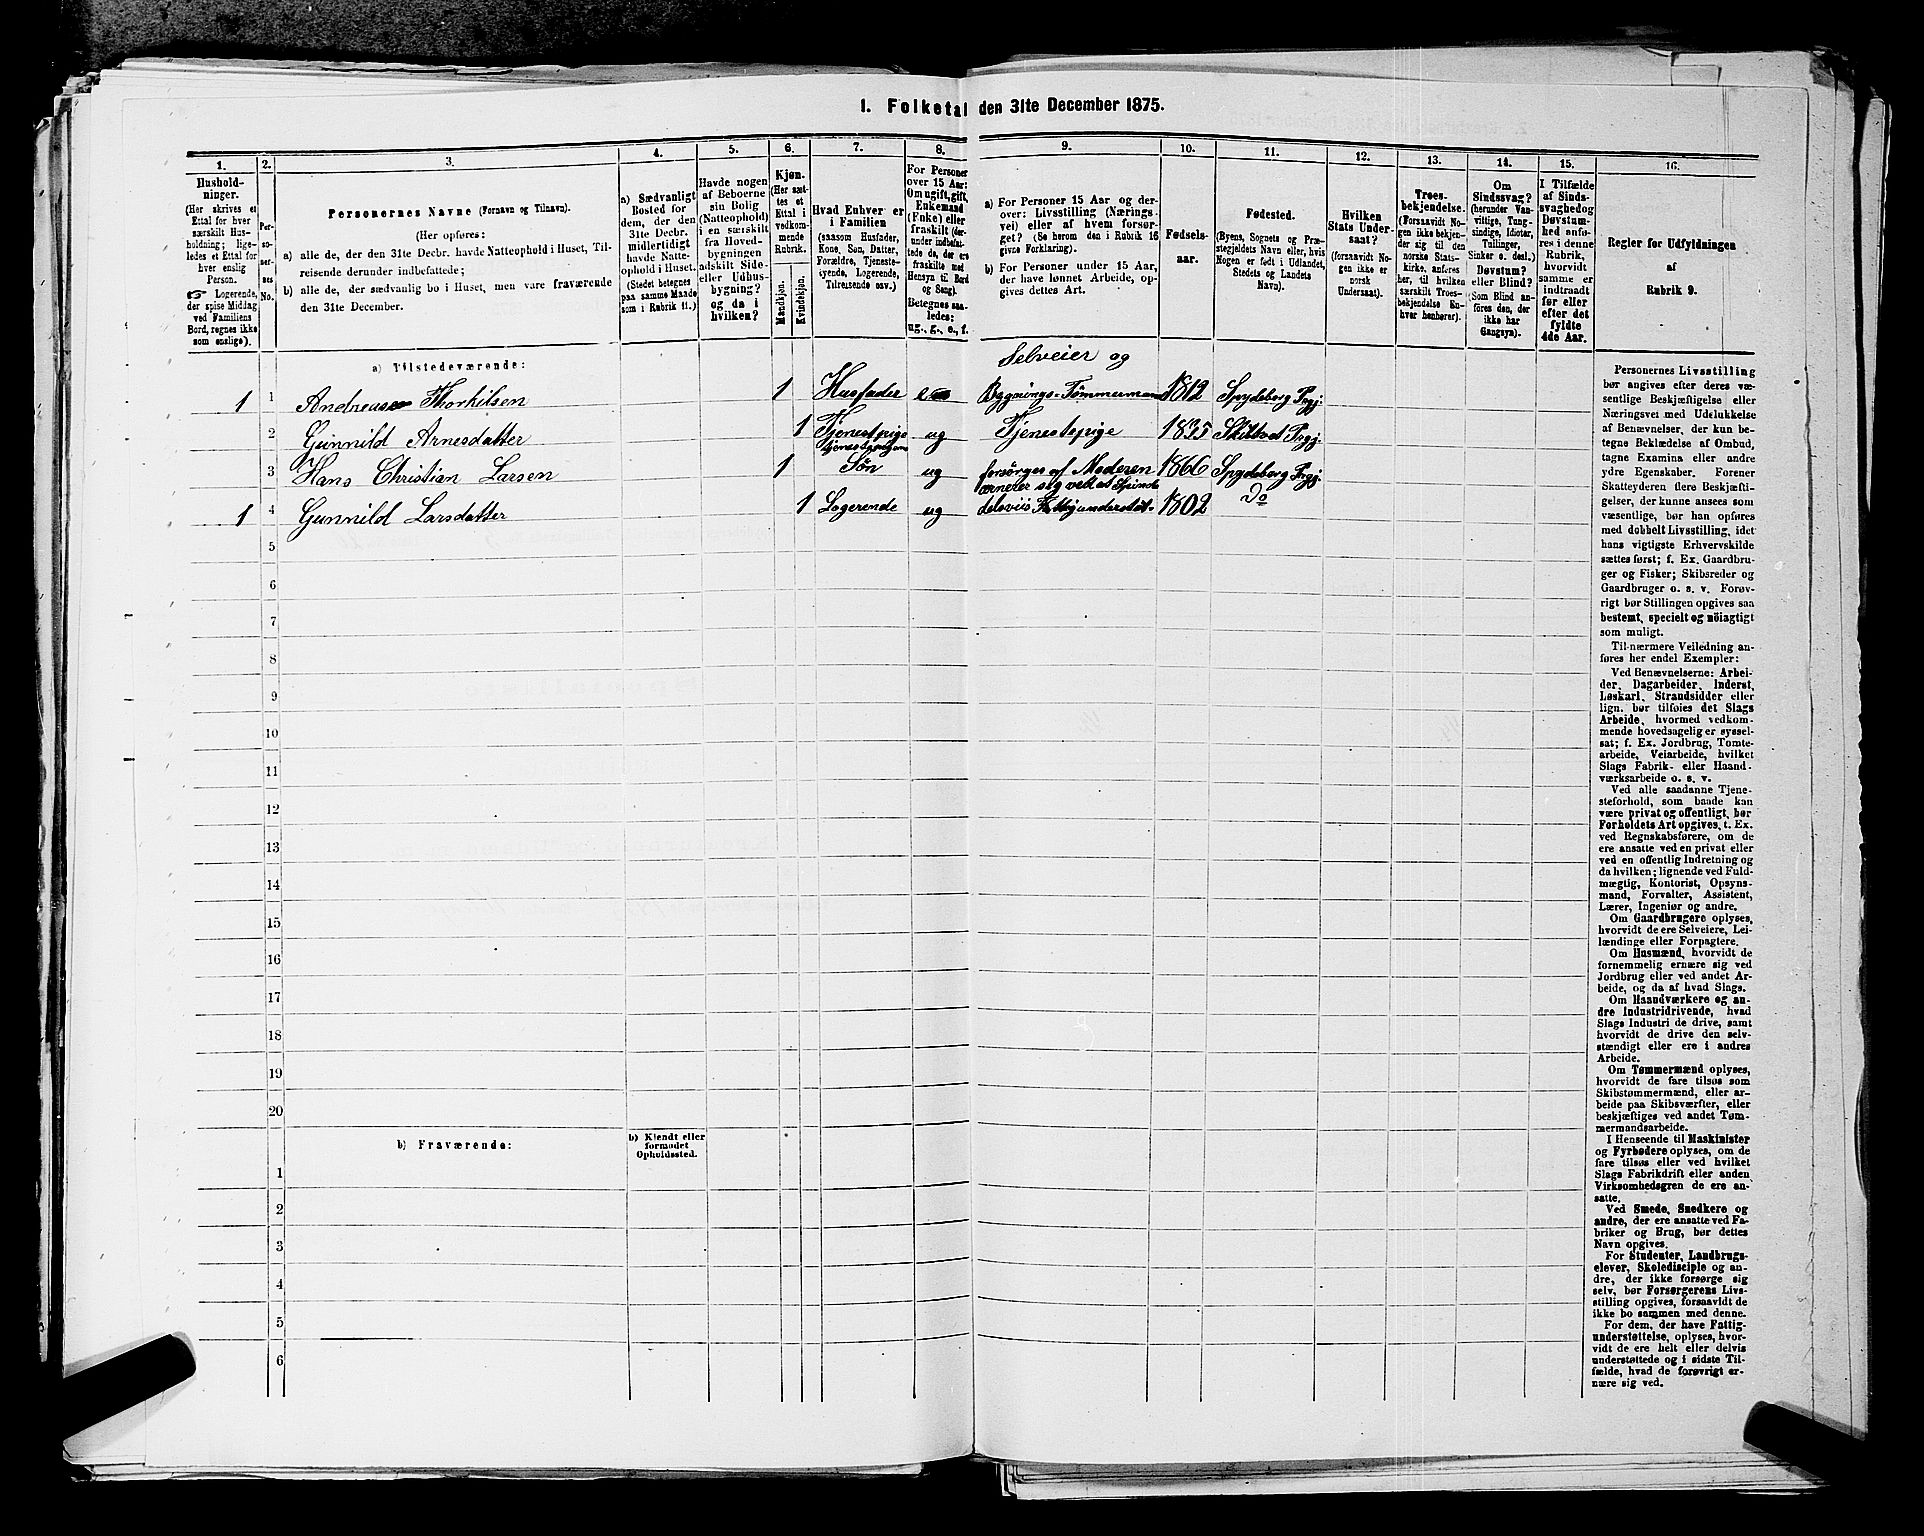 1. Folketal den 31te December 1875.
1.
2.
3.
4.
5.
6.
7.
8.
9.
10.
11.
12.
13.
14.
15.
16.
Hushold-
ninger.
(Her skrives et
Ettal for hver
særskilt Hus-
holdning; lige-
ledes et Ettal for
hver enslig
Person.
☞ Logerende,
der spise Middag
ved Familiens
Bord, regnes ikke
som enslige).
Per-
so-
ner-
nes
No.
Personernes Navne (Fornavn og Tilnavn).
(Her opføres:
a) alle de, der den 31te Decbr. havde Natteophold i Huset, Til-
reisende derunder indbefattede;
b) alle de, der sædvanlig bo i Huset, men vare fraværende
den 31te December.
a) Sædvanligt
Bosted for
dem, der den
31te Decbr.
midlertidigt
havde Natte-
ophold i Huset.
(Stedet betegnes
paa samme Maade
som i Rubrik 11.)
Havde nogen
af Beboerne
sin Bolig
(Natteophold)
i en særskilt
fra Hoved-
bygningen
adskilt Side-
eller Udhus-
bygning?
og da i
hvilken?
Kjøn.
(Her sæt-
tes et
Ettal i
vedkom-
mende
Rubrik.
Mandkjøn.
Kvindekjøn.
Hvad Enhver er
i Familien
(saasom Husfader,
Kone, Søn, Datter,
Forældre, Tjeneste-
tyende, Logerende,
Tilreisende osv.)
For Personer
over 15 Aar:
Om ugift, gift,
Enkemand
(Enke) eller
fraskilt (der-
under indbefat-
tede de, der ere
fraskilte med
Hensyn til Bord
og Seng).
Betegnes saa-
ledes:
ug., g., e., f.
a) For Personer 15 Aar og der-
over: Livsstilling (Nærings-
vei) eller af hvem forsør-
get? (Se herom den i Rubrik 16
givne Forklaring).
b) For Personer under 15 Aar,
der have lønnet Arbeide, op-
gives dettes Art.
Fødsels-
aar.
Fødested.
(Byens, Sognets og Præ-
stegjeldets Navn eller, hvis
Nogen er født i Udlandet,
Stedets og Landets
Navn).
Hvilken
Stats Under-
saat?
(forsaavidt No-
gen ikke er
norsk
Undersaat).
Troes-
bekjendelse.
(Forsaavidt No-
gen ikke bekjen-
der sig til den
norske Stats-
kirke, anføres
her, til hvilken
særskilt Troes-
bekjendelse En-
hver henhører).
Om
Sindssvag?
(herunder Van-
vittige, Tung-
sindige, Idioter,
Tullinger,
Sinker o. desl.)
Døvstum?
eller Blind?
(Som Blind an-
føres den, der
ikke har
Gangsyn).
I Tilfælde
af Sinds-
svaghed og
Døvstum-
hed anfø-
res i denne
Rubrik,
hvorvidt
samme er
indtraadt
før eller
efter det
fyldte
4de Aar.
Regler for Udfyldningen
af
Rubrik 9.
a) Tilstedeværende:
Selveier og
1 1 Andreas Thorkilsen 1 Husfader e Bygnings-Tømmermand 1812 Spydeberg Prgj.
2 Gunnild Arnesdatter 1 Tjenestpige ug Tjenestepige 1835 Skiptvet Prgj.
3 Hans Christian Larsen 1 Tjenestepigens Søn ug forsørges af Moderen 1866 Spydeberg Prgj.
1 4 Gunnild Larsdatter 1 Logerende ug ernerer sig ved at Spinde delsviis Fattigunderstøt. 1802 Do
5
6
7
8
9
10
11
12
13
14
15
16
17
18
19
20
b) Fraværende:
b) Kjendt eller
formodet
Opholdssted.
1
2
3
4
5
6
Personernes Livsstilling
bør angives efter deres væ-
sentlige Beskjæftigelse eller
Næringsvei med Udelukkelse
af Benævnelser, der kun be-
tegne Beklædelse af Ombud,
tagne Examina eller andre
ydre Egenskaber. Forener
Skatteyderen flere Beskjæfti-
gelser, der kunne ansees som
væsentlige, bør han opføres
med dobbelt Livsstilling, idet
hans vigtigste Erhvervskilde
sættes først; f. Ex. Gaardbru-
ger og Fisker; Skibsreder og
Gaardbruger o. s. v. Forøv-
rigt bør Stillingen opgives saa
bestemt, specielt og nöiagtigt
som muligt.
Til nærmere Veiledning an-
føres her endel Exempler:
Ved Benævnelserne: Arbei-
der, Dagarbeider, Inderst,
Løskarl, Strandsidder eller
lign. bør tilføies det Slags
Arbeide, hvormed vedkom-
mende hovedsagelig er syssel-
sat; f. Ex. Jordbrug, Tomte-
arbeide, Veiarbeide, hvilket
Slags Fabrik- eller Haand-
værksarbeide o. s. v.
Ved alle saadanne Tjene-
steforhold, som baade kan
være privat og offentligt, bør
Forholdets Art opgives, t. Ex.
ved Regnskabsførere, om de
ere ansatte ved en privat eller
ved en offentlig Indretning og
da hvilken; lignende ved Fuld-
mægtig, Kontorist, Opsyns-
mand, Forvalter, Assistent,
Lærer, Ingeniør og andre.
Om Gaardbrugere oplyses,
hvorvidt de ere Selveiere, Lei-
lændinge eller Forpagtere.
Om Husmænd, hvorvidt de
fornemmelig ernære sig ved
Jordbrug eller ved andet Ar-
beide, og da af hvad Slags.
Om Haandværkere og an-
dre Industridrivende, hvad
Slags Industri de drive, samt
hvorvidt de drive den selv-
stændigt eller ere i andres
Arbeide.
Om Tømmermænd oplyses,
hvorvidt de fare tilsøs som
Skibstømmermænd, eller ar-
beide paa Skibsværfter, eller
beskjæftiges ved andet Tøm-
mermandsarbeide.
I Henseende til Maskinister
og Fyrbødere oplyses, om de
fare tilsøs eller ved hvilket
Slags Fabrikdrift eller anden
Virksomhedsgren de ere an-
satte.
Ved Smede, Snedkere og
andre, der ere ansatte ved Fa-
briker og Brug, bør dettes
Navn opgives.
For Studenter, Landbrugs-
elever, Skoledisciple og an-
dre, der ikke forsørge sig
selv, bør Forsørgerens Livs-
stilling opgives, forsaavidt de
ikke bo sammen med denne.
For dem, der have Fattig-
understøttelse, oplyses, hvor-
vidt de ere helt eller delvis
understøttede og i sidste Til-
fælde, hvad de forøvrigt er-
nære sig ved.